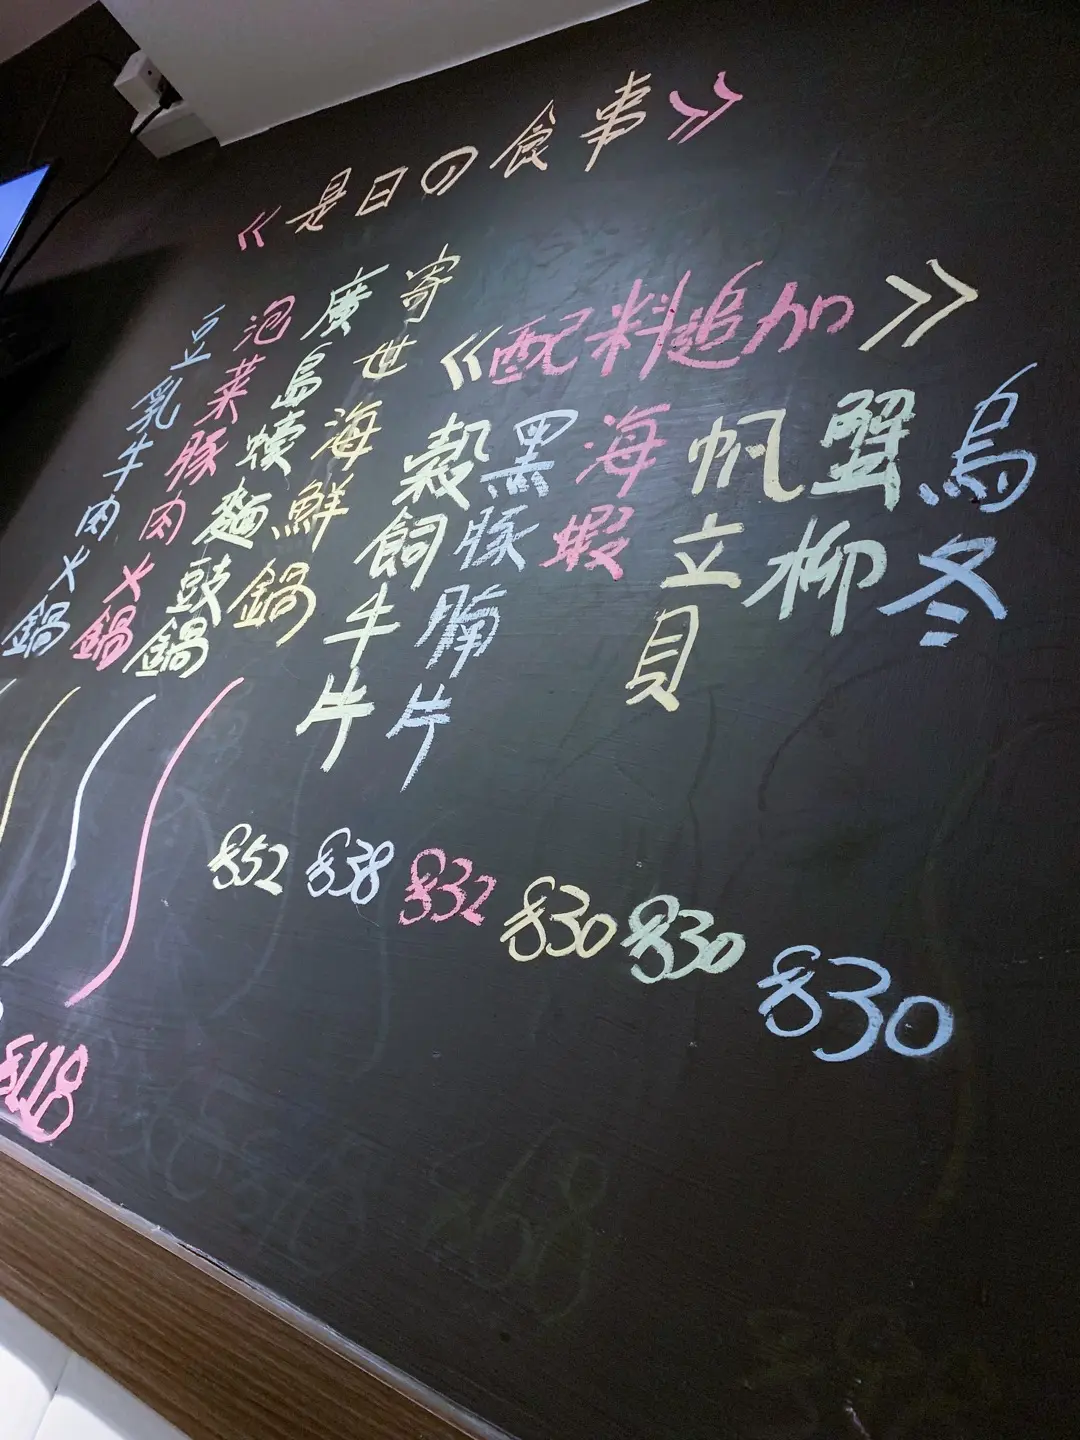 《是日の食事》
豆乳牛肉火鍋
泡菜豚肉火鍋
廣島麵豉鍋
寄世海鮮鍋
$118
《配料追加》
穀飼牛片
$52
黑豚腩片
$38
海蝦
$32
帆立貝
$30
蟹柳
$30
烏冬
$30